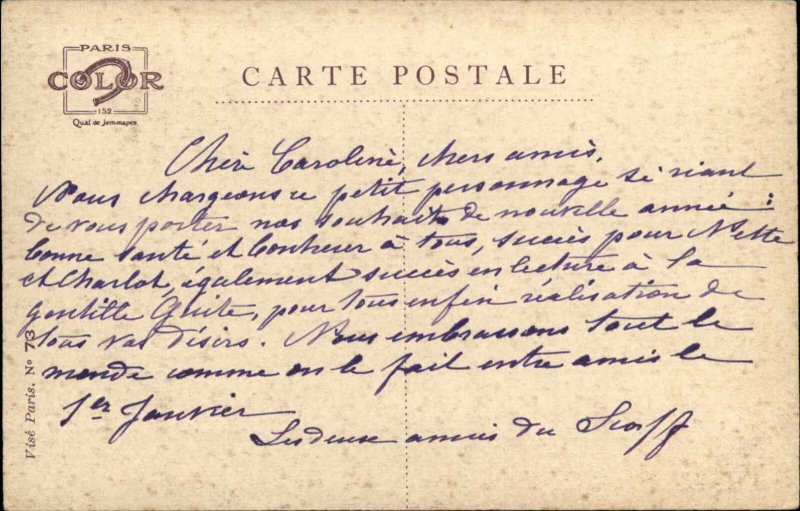 PARIS
COLOR
152
Quai de Jemmapes
CARTE POSTALE
Chère Caroline, chers amis,
Nous chargeons ce petit personnage si riant
de vous porter nos souhaits de nouvelle année :
bonne santé et bonheur à tous, succès pour Nette
et Charlot, également succès en lecture à la
gentille Guite, pour tous enfin réalisation de
tous vos désirs. Nous embrassons tout le
monde comme on le fait entre amis le
1er Janvier
Les deux amies du Scorff
Visé Paris. No 73